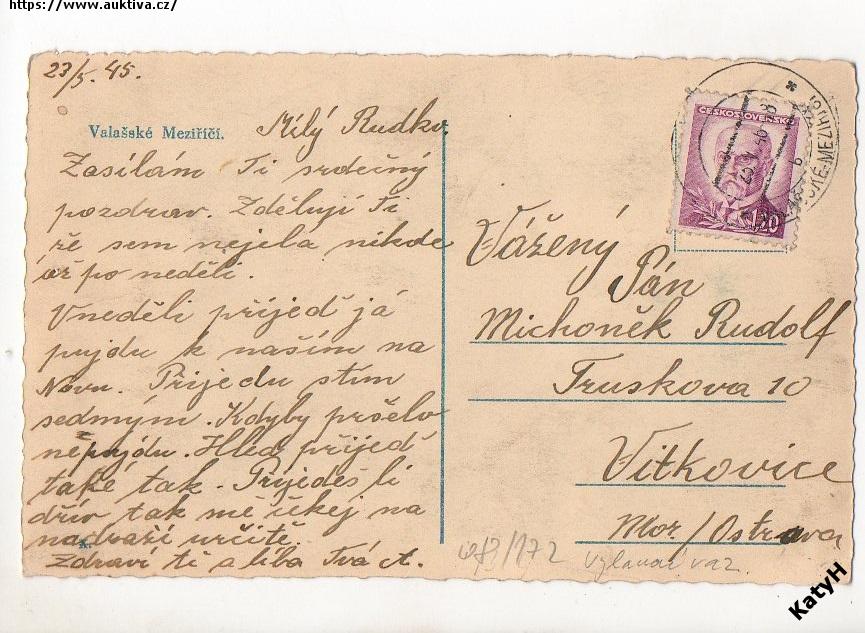 https://www.auktiva.cz/
23/5. 45.
Valašské Meziříčí.
Milý Rudko.
Zasílám Ti srdečný
pozdrav. Zdělují Ti
že sem nejela nikde
až po neděli.
V neděli přijeď já
pujdu k našim na
Novu. Přijedu stím
sedmým. Kdyby pršelo
nepujdu. Hleď přijeď
také tak. Prijedeš li
dřív tak mě čekej na
nadraží určitě.
Zdraví tě a líba Tvá A.
K.
ČESKOSLOVENSKO
1.20
Vážený
Pán
Michoněk Rudolf
Truskova 10
Vitkovice
Mor/Ostrava
172
KatyH